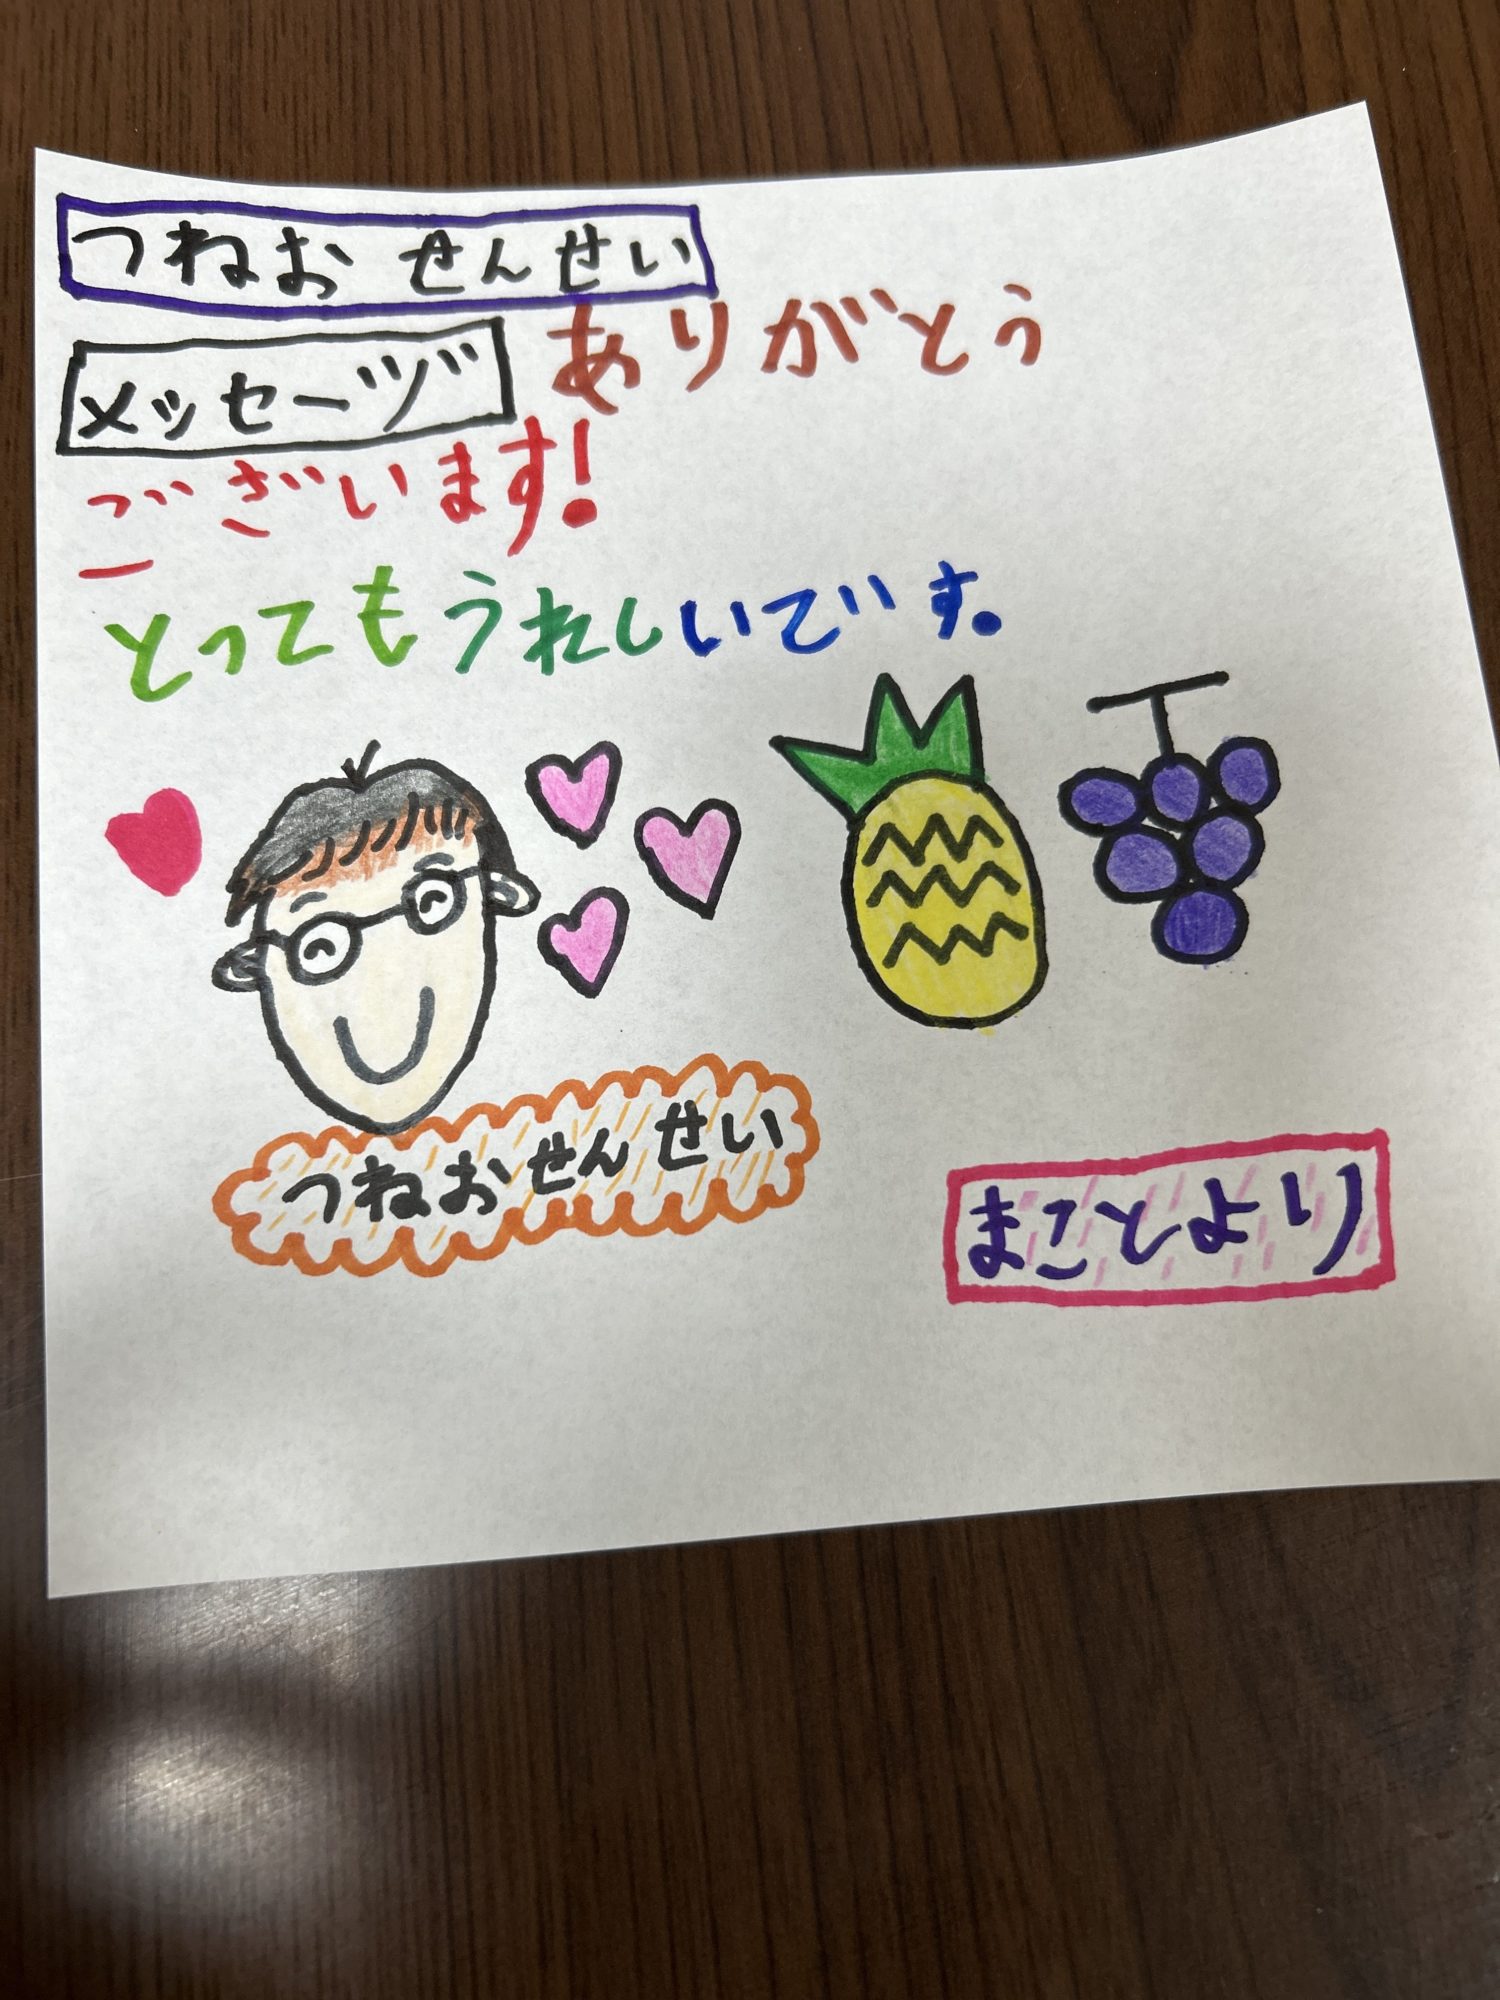 つねお せんせい
メッセージ ありがとう
ございます!
とってもうれしいです。
つねおせんせい
まことより